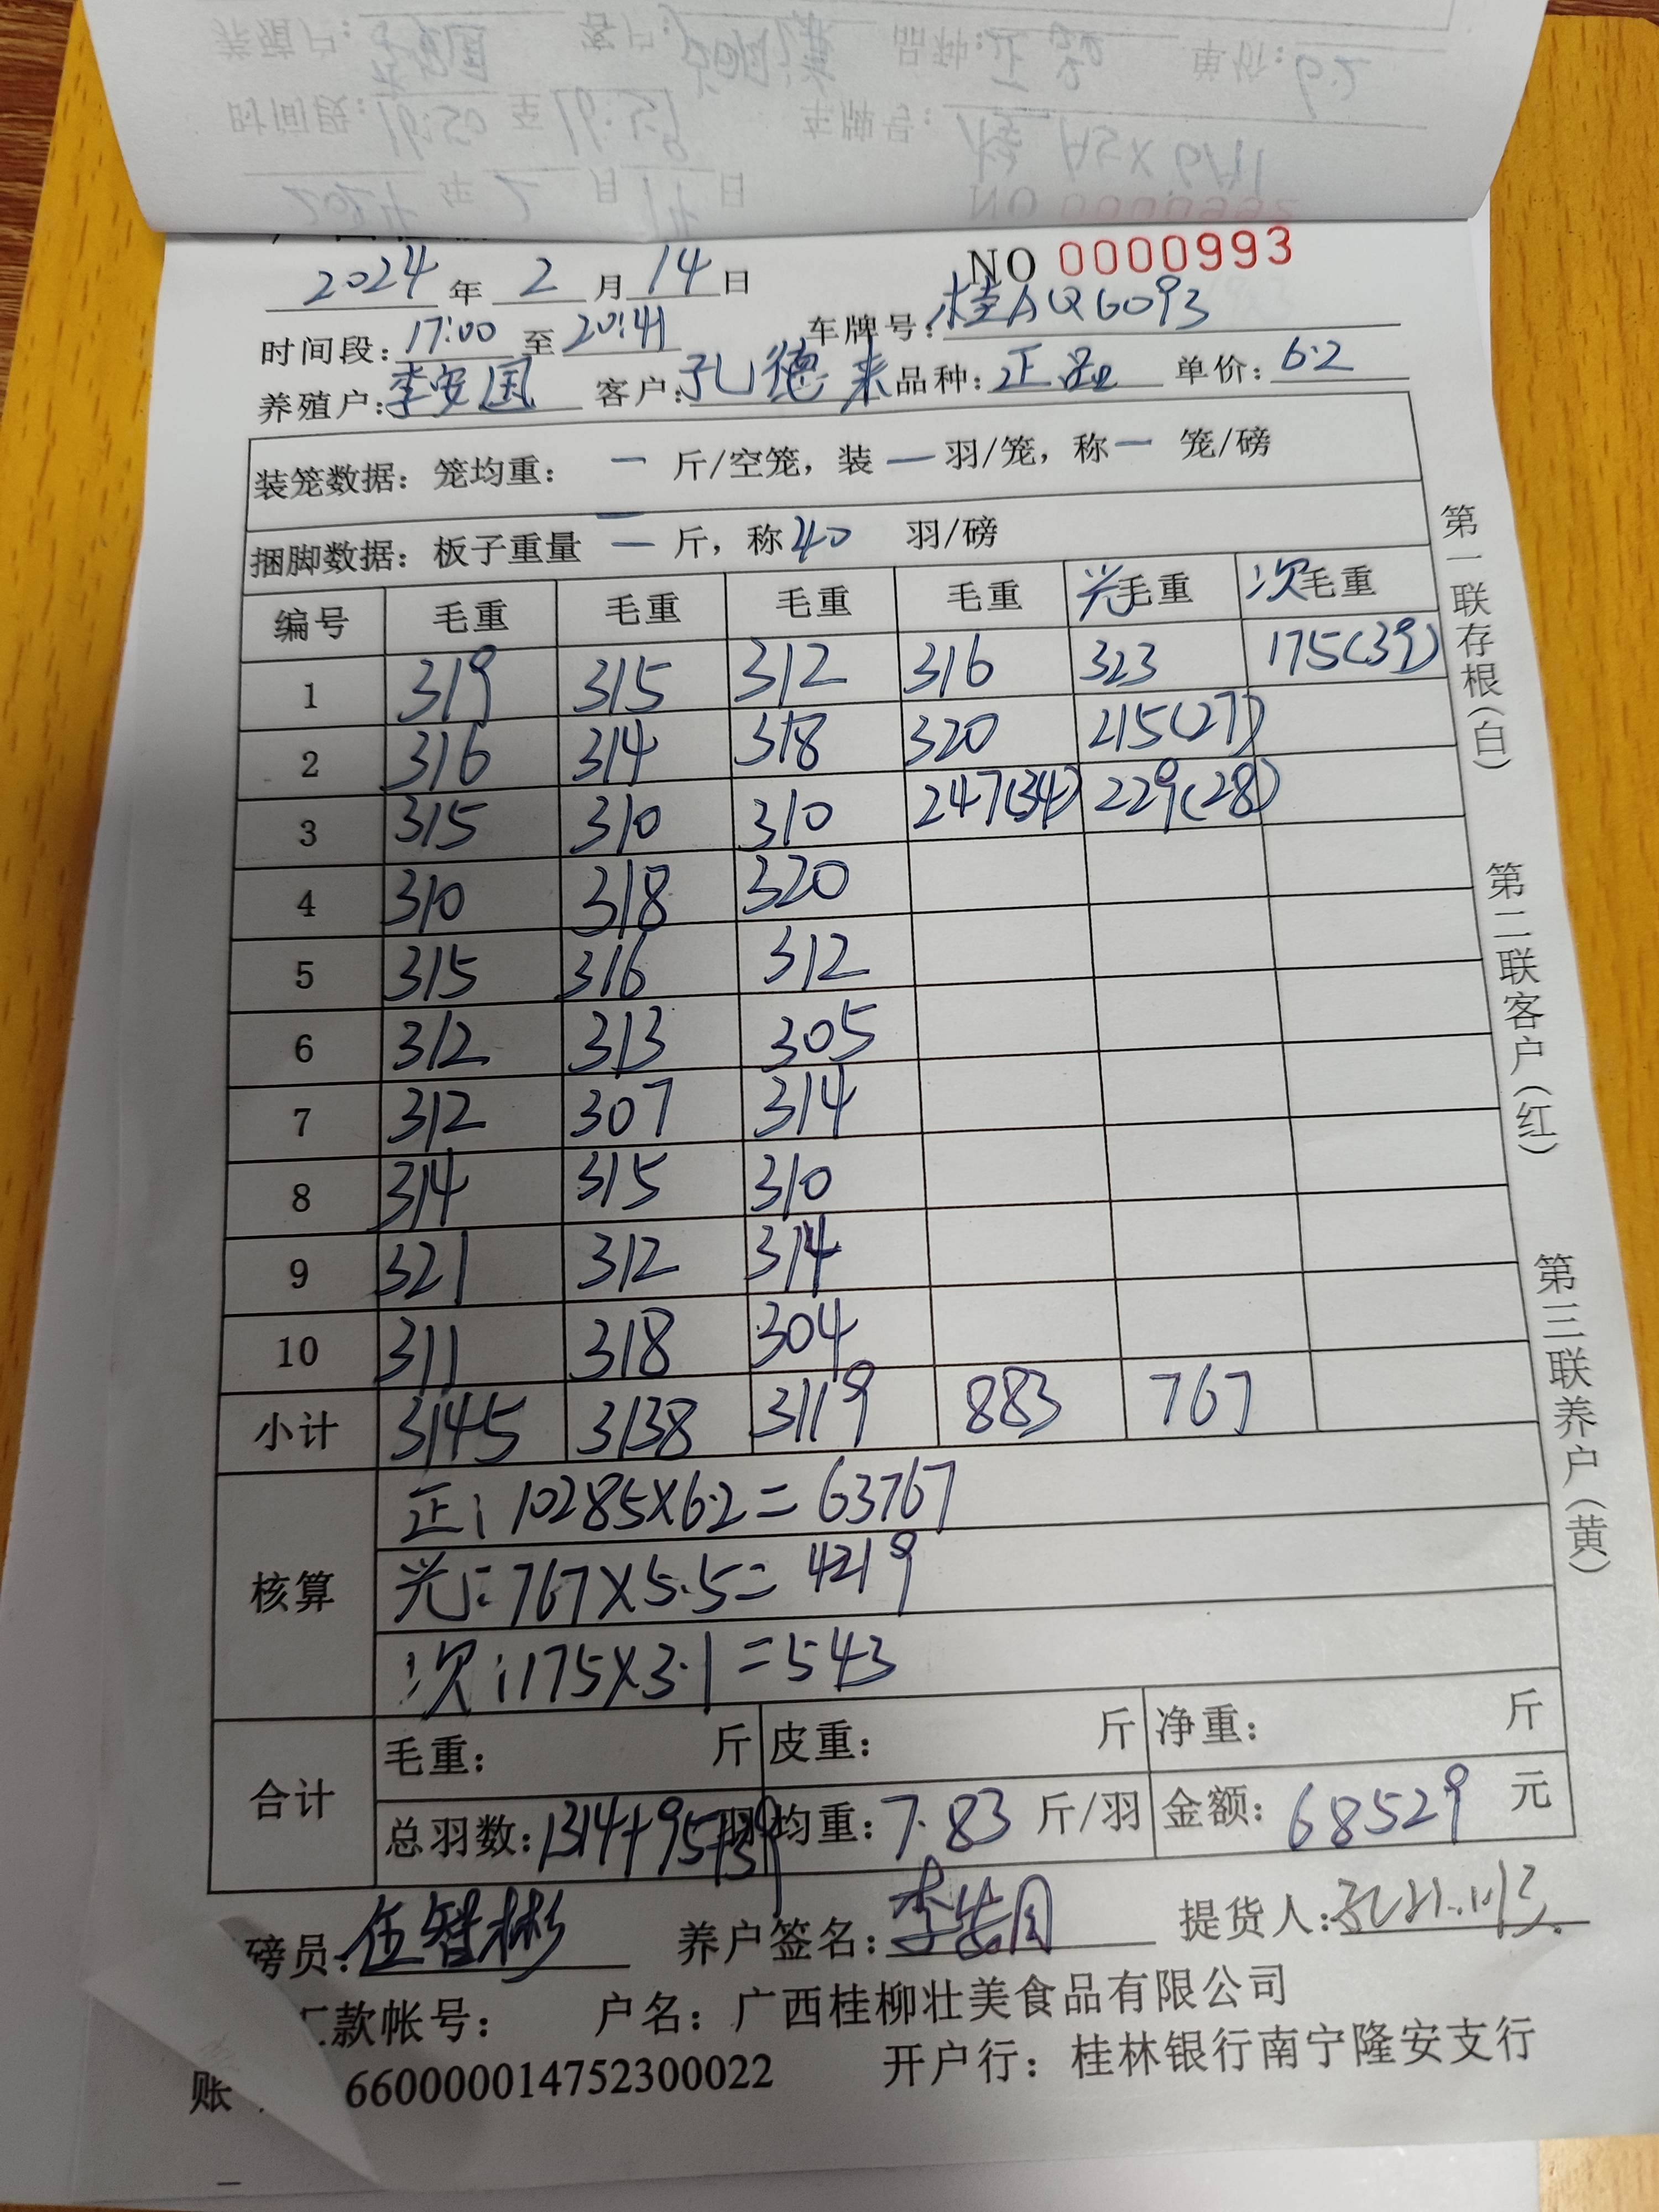 NO 0000993
2024 年 2 月 14 日
时间段: 17:00 至 20:41 车牌号: 桂AQ6093
养殖户: 李安国 客户: 孔德来 品种: 正品 单价: 6.2
装笼数据: 笼均重: — 斤/空笼, 装 — 羽/笼, 称 — 笼/磅
捆脚数据: 板子重量 — 斤, 称 40 羽/磅
编号 毛重 毛重 毛重 毛重 光毛重 次毛重
1 319 315 312 316 323 175(39)
2 316 314 318 320 215(27)
3 315 310 310 247(34) 229(28)
4 310 318 320
5 315 316 312
6 312 313 305
7 312 307 314
8 314 315 310
9 321 312 314
10 311 318 304
小计 3145 3138 3119 883 767
核算
正: 10285×6.2=63767
光: 767×5.5=4219
次: 175×3.1=543
合计
毛重: 斤 皮重: 斤 净重: 斤
总羽数: 1314+95+39 羽 均重: 7.83 斤/羽 金额: 68529 元
磅员: 伍智彬 养户签名: 提货人:
汇款帐号: 户名: 广西桂柳壮美食品有限公司
账 660000014752300022 开户行: 桂林银行南宁隆安支行
第一联存根(白)
第二联客户(红)
第三联养户(黄)